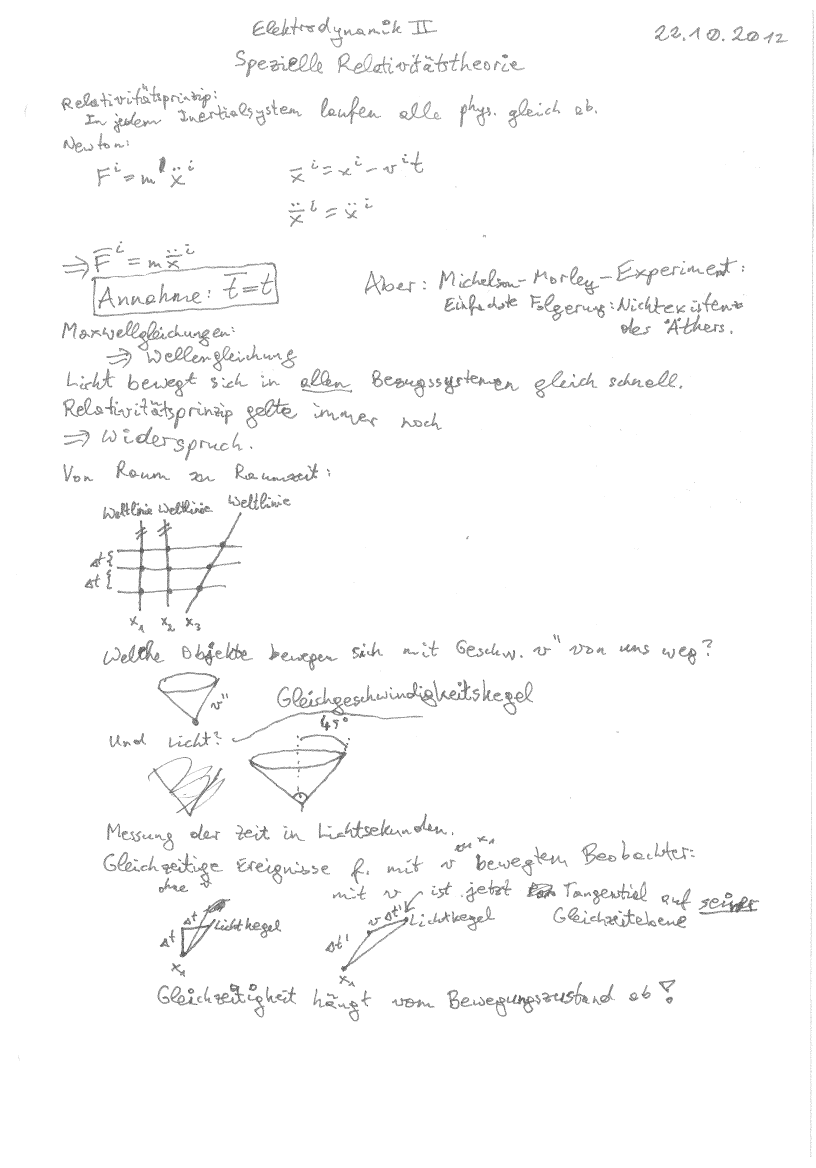 Elektrodynamik II
22.10.2012
Spezielle Relativitätstheorie
Relativitätsprinzip:
In jedem Inertialsystem laufen alle phys. gleich ab.
Newton:
Fⁱ = m ẍⁱ
x̄ⁱ = xⁱ - vⁱt
x̄̈ⁱ = ẍⁱ
⇒ F̄ⁱ = m x̄̈ⁱ
Annahme: t̄ = t
Aber: Michelson-Morley-Experiment:
Einfachste Folgerung: Nichtexistenz
des Äthers.
Maxwellgleichungen:
⇒ Wellengleichung
Licht bewegt sich in allen Bezugssystemen gleich schnell.
Relativitätsprinzip gelte immer noch
⇒ Widerspruch.
Von Raum zu Raumzeit:
Weltlinie Weltlinie Weltlinie
Δt {
Δt {
x₁ x₂ x₃
Welche Objekte bewegen sich mit Geschw. v" von uns weg?
v"
Gleichgeschwindigkeitskegel
Und Licht?
45°
Messung der Zeit in Lichtsekunden.
Gleichzeitige Ereignisse f. mit v bewegtem Beobachter:
zu x₁
ohne v
mit v
ist jetzt Tangential auf seiner
Gleichzeitebene
Δt
Δt
Lichtkegel
x₁
v Δt'
Δt'
Lichtkegel
x₁
Gleichzeitigkeit hängt vom Bewegungszustand ab!